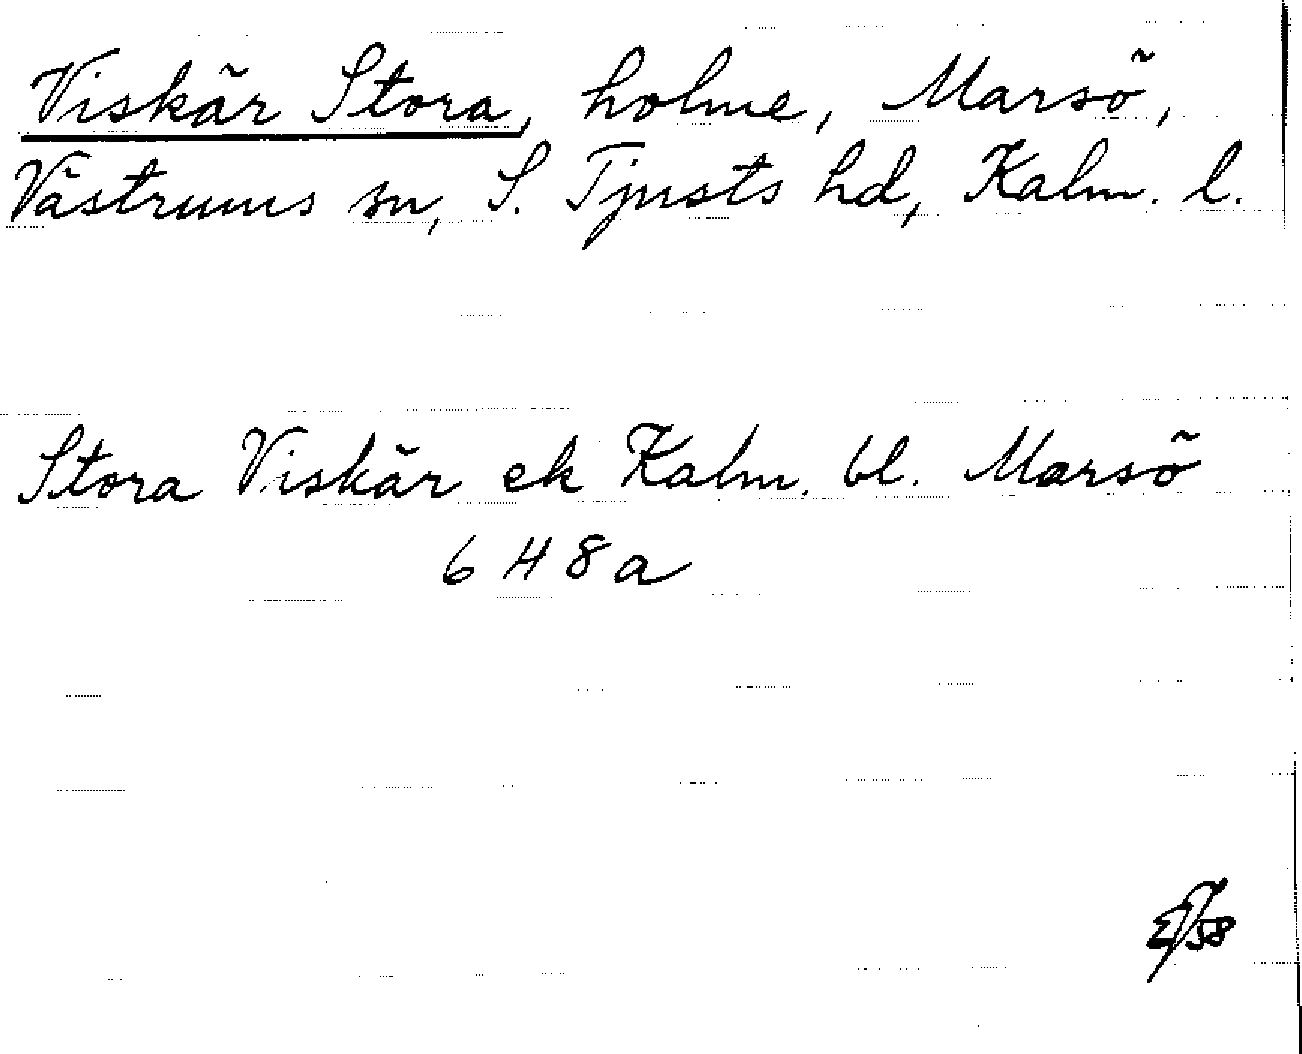 Viskär Stora, holme, Marsö,
Västrums sn, S. Tjusts hd, Kalm. l.
Stora Viskär ek Kalm. bl. Marsö
6 H 8 a
58